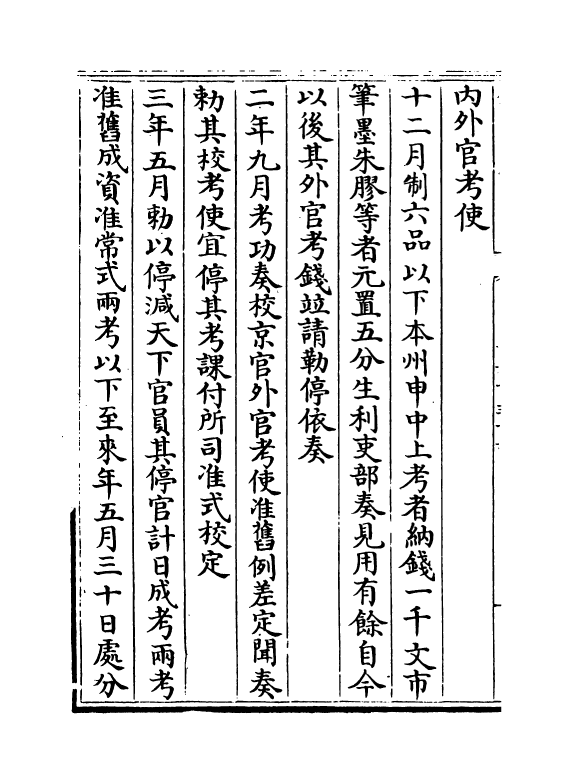 内外官考使
十二月制六品以下本州申中上考者納錢一千文市
筆墨朱膠等者元置五分生利吏部奏見用有餘自今
以後其外官考錢竝請勒停依奏
二年九月考功奏校京官外官考使准舊例差定聞奏
勅其校考使宜停其考課付所司准式校定
三年五月勅以停減天下官員其停官計日成考兩考
准舊成資准常式兩考以下至來年五月三十日處分